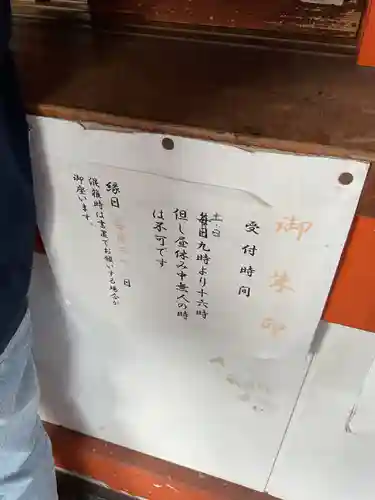 御朱印
受付時間
土・日
毎日九時より十六時
但し昼休み中無人の時
は不可です
縁日 日
混雑時は書置でお願いする場合が
御座います。